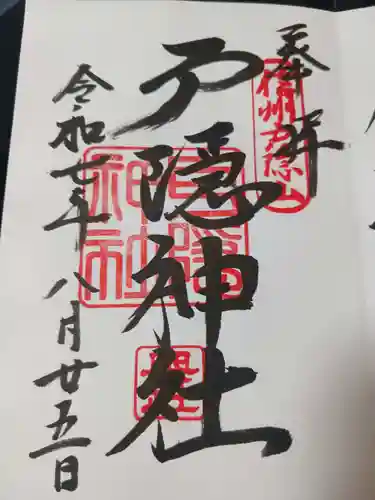 奉拝
信州戸隠山
戸隠神社
戸隠神社
令和七年八月廿五日